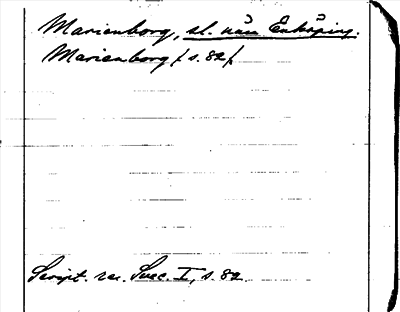 Marienborg, sl. nära Enköping.
Marienborg / s. 82 /
Script. rer. Suec. I, s. 82